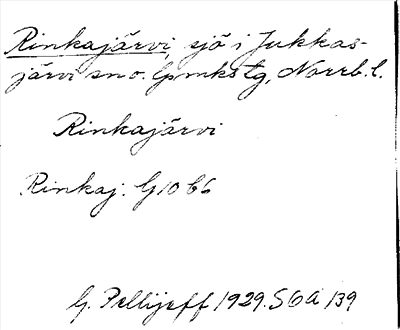 Rinkajärvi, sjö i Jukkas-
järvi sn o. lpmks tg, Norrb. l.
Rinkajärvi
Rinkaj. G10 b6
G. Pellijeff 1929. S6a 139